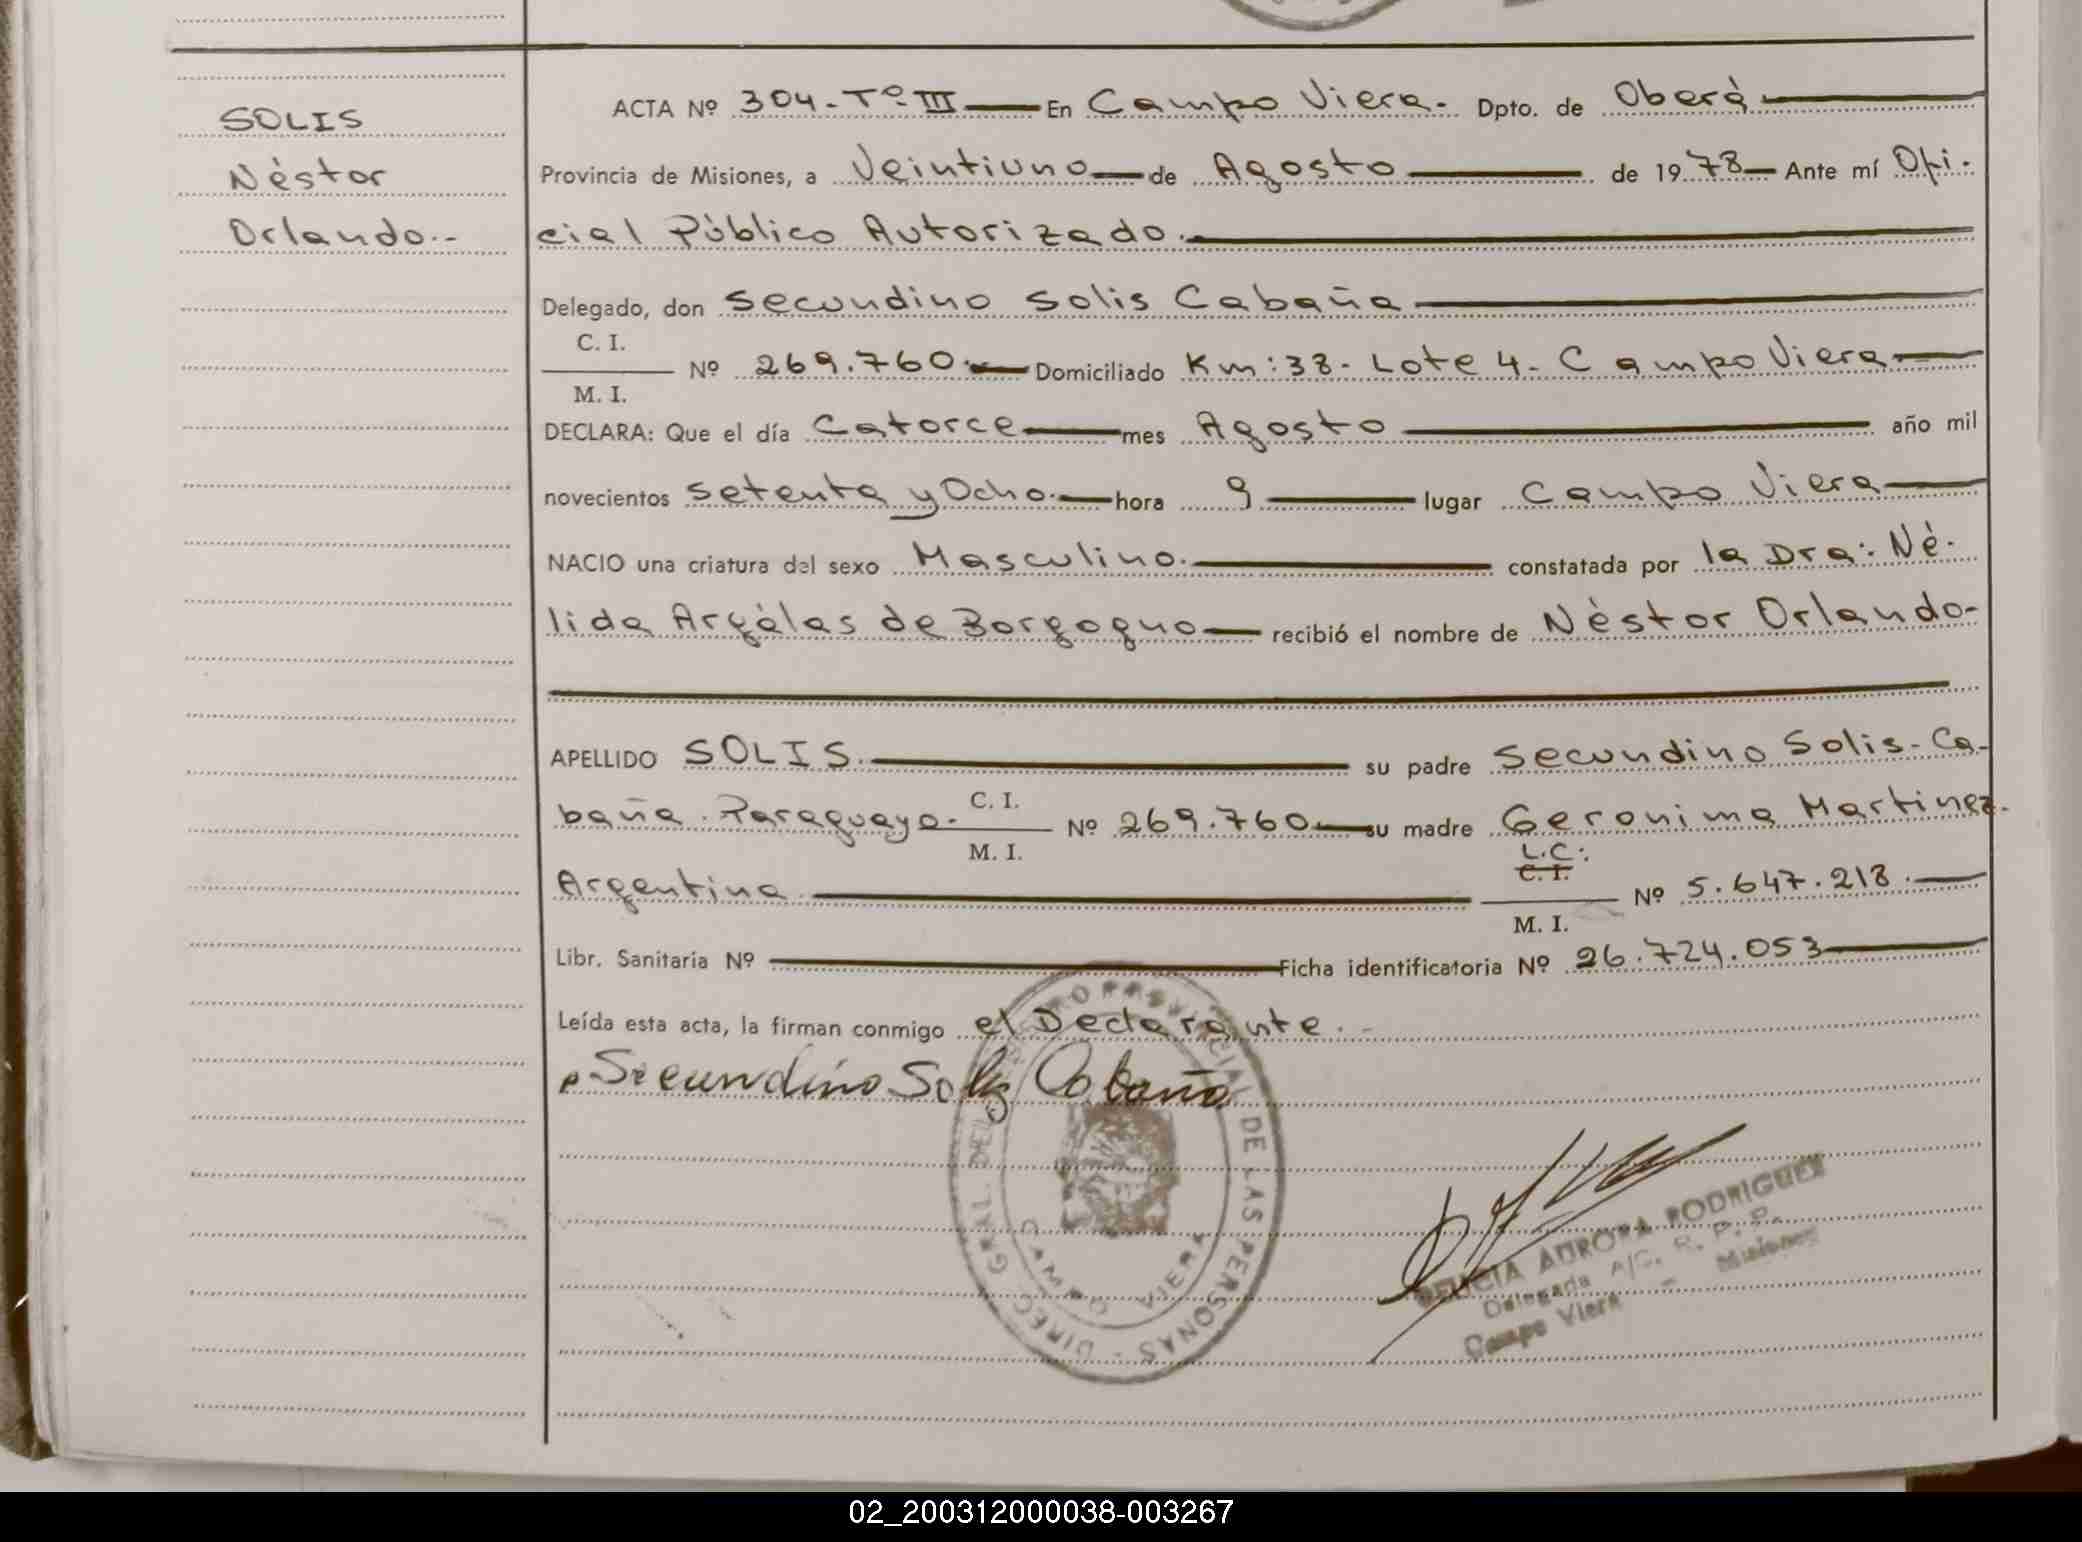 SOLIS
Néstor
Orlando.-
ACTA Nº 304-Tº-III En Campo Viera. Dpto. de Oberá
Provincia de Misiones, a Veintiuno de Agosto de 1978 Ante mí Ofi-
cial Público Autorizado.
Delegado, don Secundino Solis Cabaña
C. I.
M. I.
Nº 269.760. Domiciliado Km: 38- Lote 4- Campo Viera
DECLARA: Que el día Catorce mes Agosto año mil
novecientos setenta y Ocho. hora 9 lugar Campo Viera
NACIO una criatura del sexo Masculino. constatada por la Dra: Né-
lida Argélas de Borgogno recibió el nombre de Néstor Orlando-
APELLIDO SOLIS. su padre Secundino Solis-Ca-
baña. Paraguayo. C. I.
M. I.
Nº 269.760 su madre Geronima Martinez.
Argentina L.C:
C. I.
M. I.
Nº 5.647.218.
Libr. Sanitaria Nº Ficha identificatoria Nº 26.724.053
Leída esta acta, la firman conmigo el Declarante.-
Secundino Solis Cabaña
DIREC. GRAL. DEL REGISTRO PROVINCIAL DE LAS PERSONAS -
CAMPO VIERA
AURORA RODRIGUEZ
Delegada A/C. R. P. P.
Campo Viera - Misiones
02_200312000038-003267